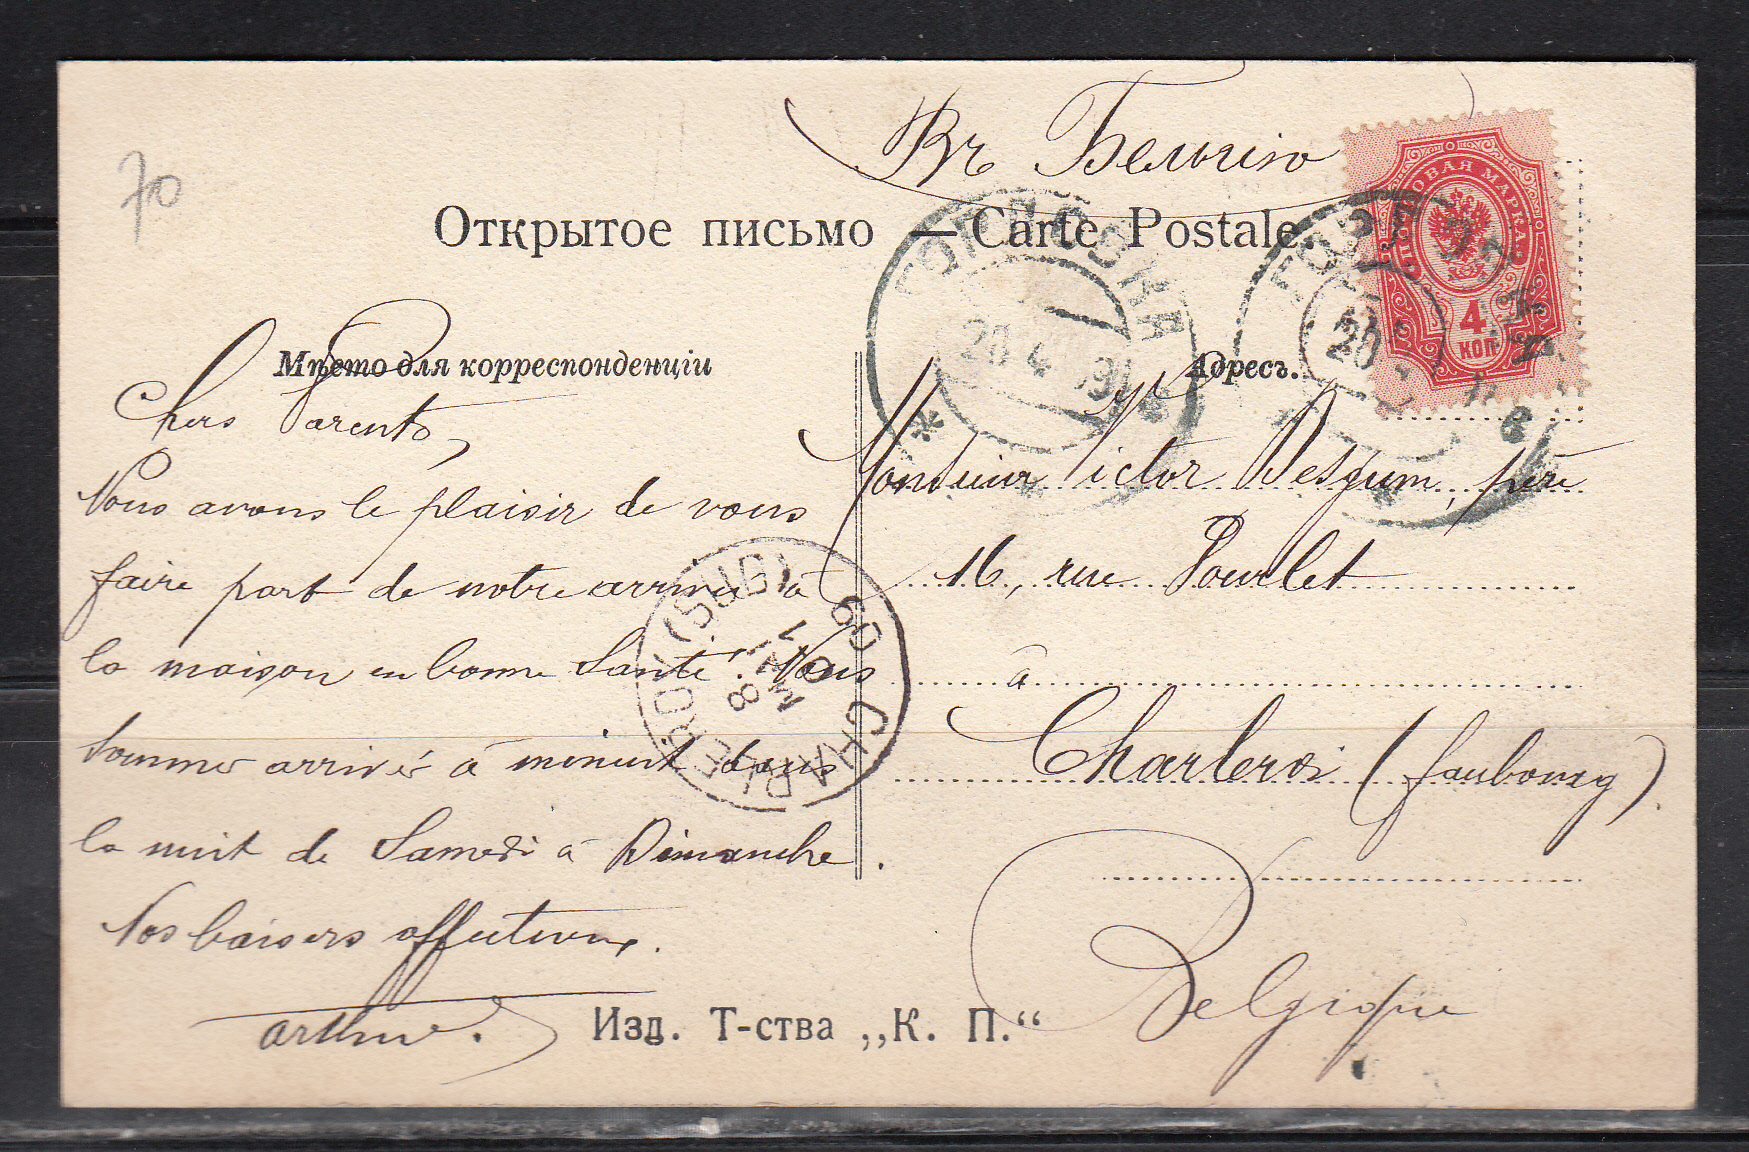 70
Въ Бельгію
Открытое письмо — Carte Postale.
ПОЧТОВАЯ МАРКА
4
КОП
ГОРЛОВКА
20 4 09
20
Мѣсто для корреспонденціи
Адресъ.
Chers Parents,
Nous avons le plaisir de vous
faire part de notre arrivée à
la maison en bonne Santé! Nous
sommes arrivés à minuit dans
la nuit de Samedi à Dimanche.
Nos baisers affectueux.
Arthur.
Monsieur Victor père
16, rue Pourlet
à
Charleroi (faubourg)
Belgique
CHARLEROY (SUD)
8
MAI
09
Изд. Т-ства „К. П.“